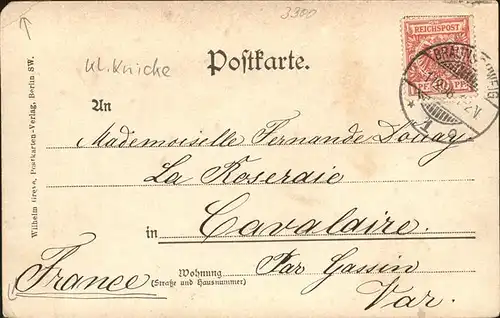 3900
Postkarte.
kl. Knicke
REICHSPOST
PF
BRAUNSCHWEIG
1
An
Mademoiselle Fernande Douay
La Roseraie
in Cavalaire.
France
Wohnung Par Gassin
(Straße und Hausnummer)
Var.
Wilhelm Greve, Postkarten-Verlag, Berlin SW.